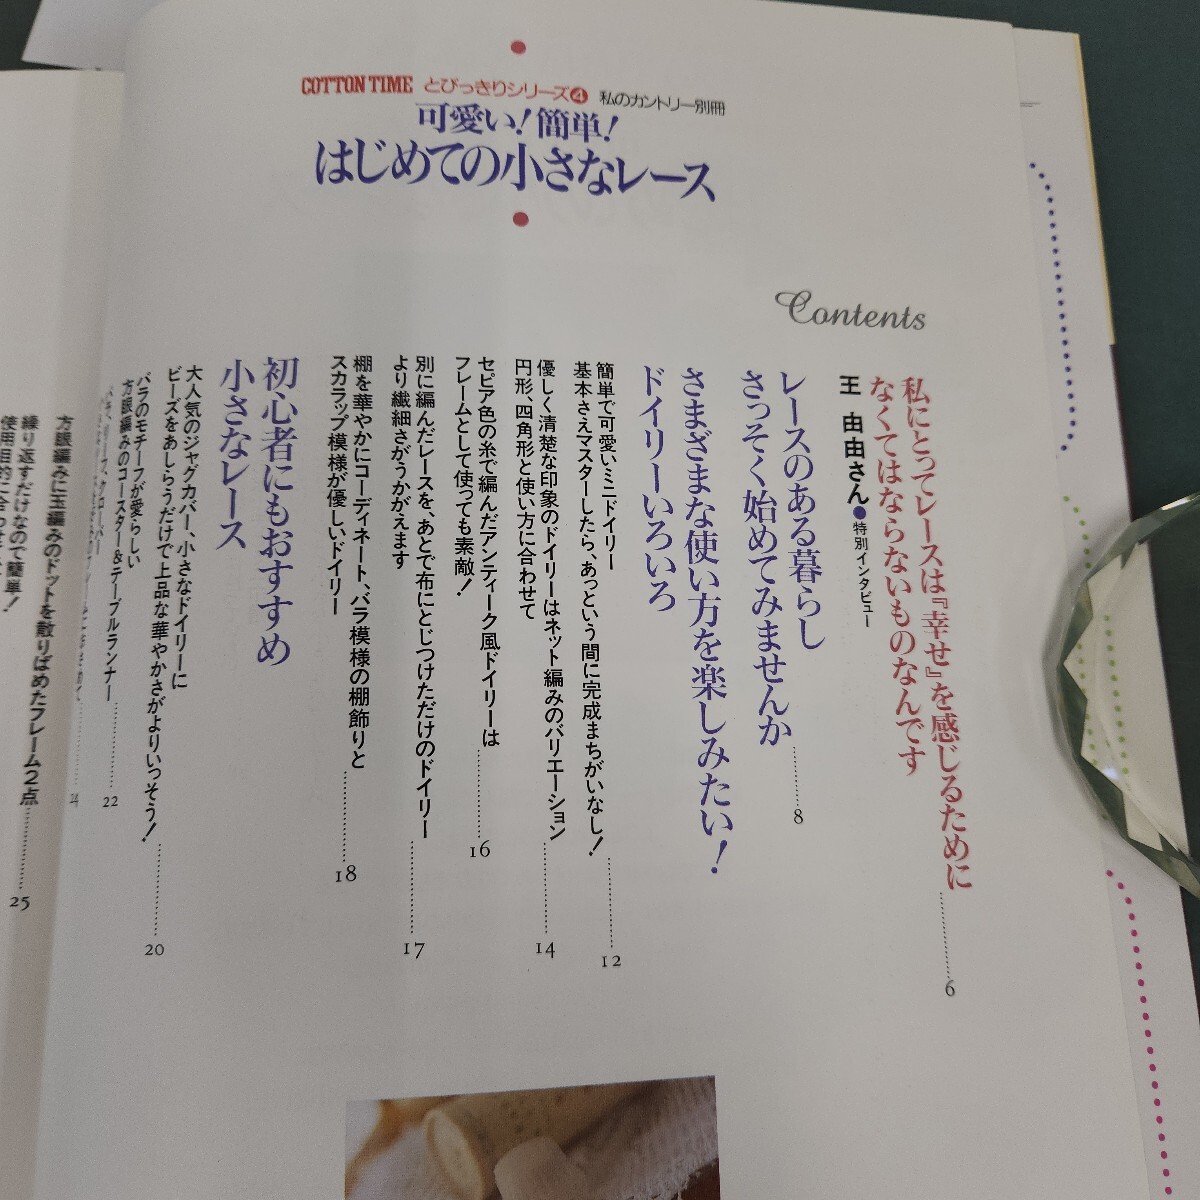 COTTON TIME とびっきりシリーズ4 私のカントリー別冊
可愛い!簡単!
はじめての小さなレース
Contents
私にとってレースは『幸せ』を感じるために
なくてはならないものなんです
王 由由さん●特別インタビュー
6
レースのある暮らし
さっそく始めてみませんか
8
さまざまな使い方を楽しみたい!
ドイリーいろいろ
簡単で可愛いミニドイリー
基本さえマスターしたら、あっという間に完成まちがいなし!
12
優しく清楚な印象のドイリーはネット編みのバリエーション
円形、四角形と使い方に合わせて
14
セピア色の糸で編んだアンティーク風ドイリーは
フレームとして使っても素敵!
16
別に編んだレースを、あとで布にとじつけただけのドイリー
より繊細さがうかがえます
17
棚を華やかにコーディネート、バラ模様の棚飾りと
スカラップ模様が優しいドイリー
18
初心者にもおすすめ
小さなレース
大人気のジャグカバー、小さなドイリーに
ビーズをあしらうだけで上品な華やかさがよりいっそう!
20
バラのモチーフが愛らしい
方眼編みのコースター&テーブルランナー
22
24
方眼編みに玉編みのドットを散りばめたフレーム2点
25
繰り返すだけなので簡単!